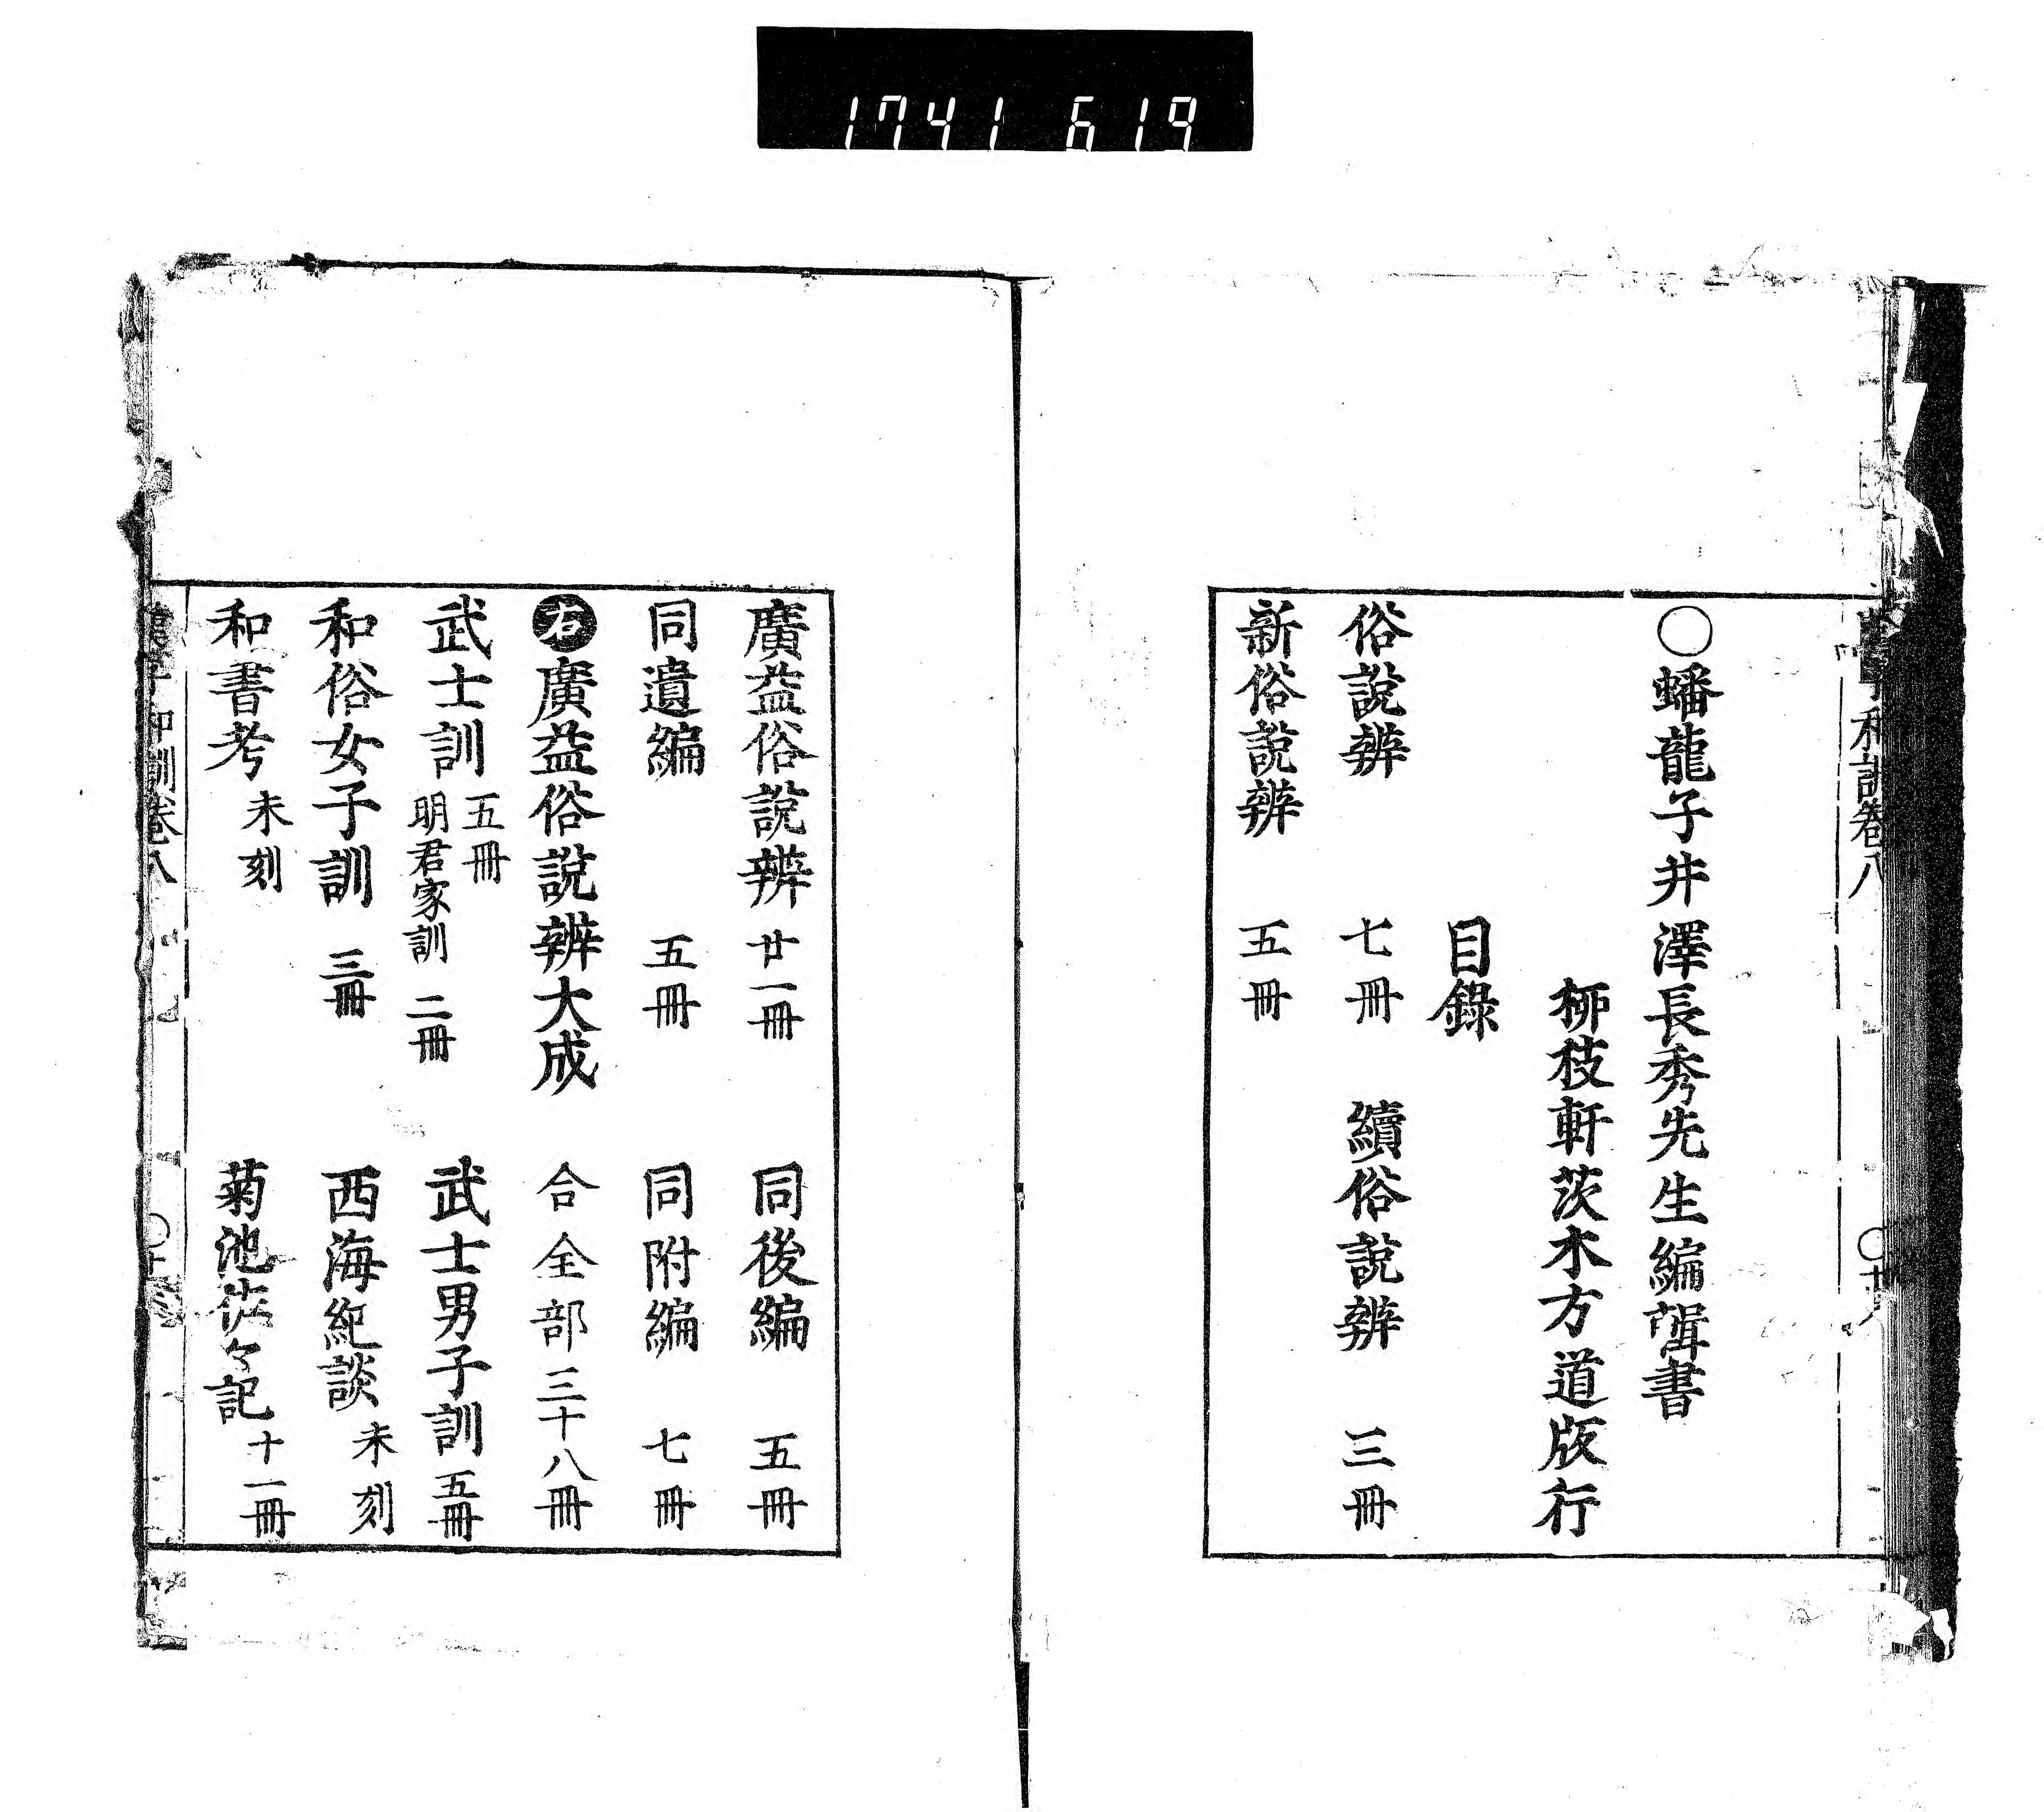 1741 619
○蟠龍子井澤長秀先生編輯書
柳枝軒茨木方道版行
目錄
俗説辨 七冊 續俗説辨 三冊
新俗説辨 五冊
廣益俗説辨 廿一冊 同後編 五冊
同遺編 五冊 同附編 七冊
右廣益俗説辨大成 合全部三十八冊
武士訓 五冊 明君家訓 二冊 武士男子訓 五冊
和俗女子訓 三冊 西海紀談 未刻
和書考 未刻 菊池佐々記 十一冊
和訓卷八